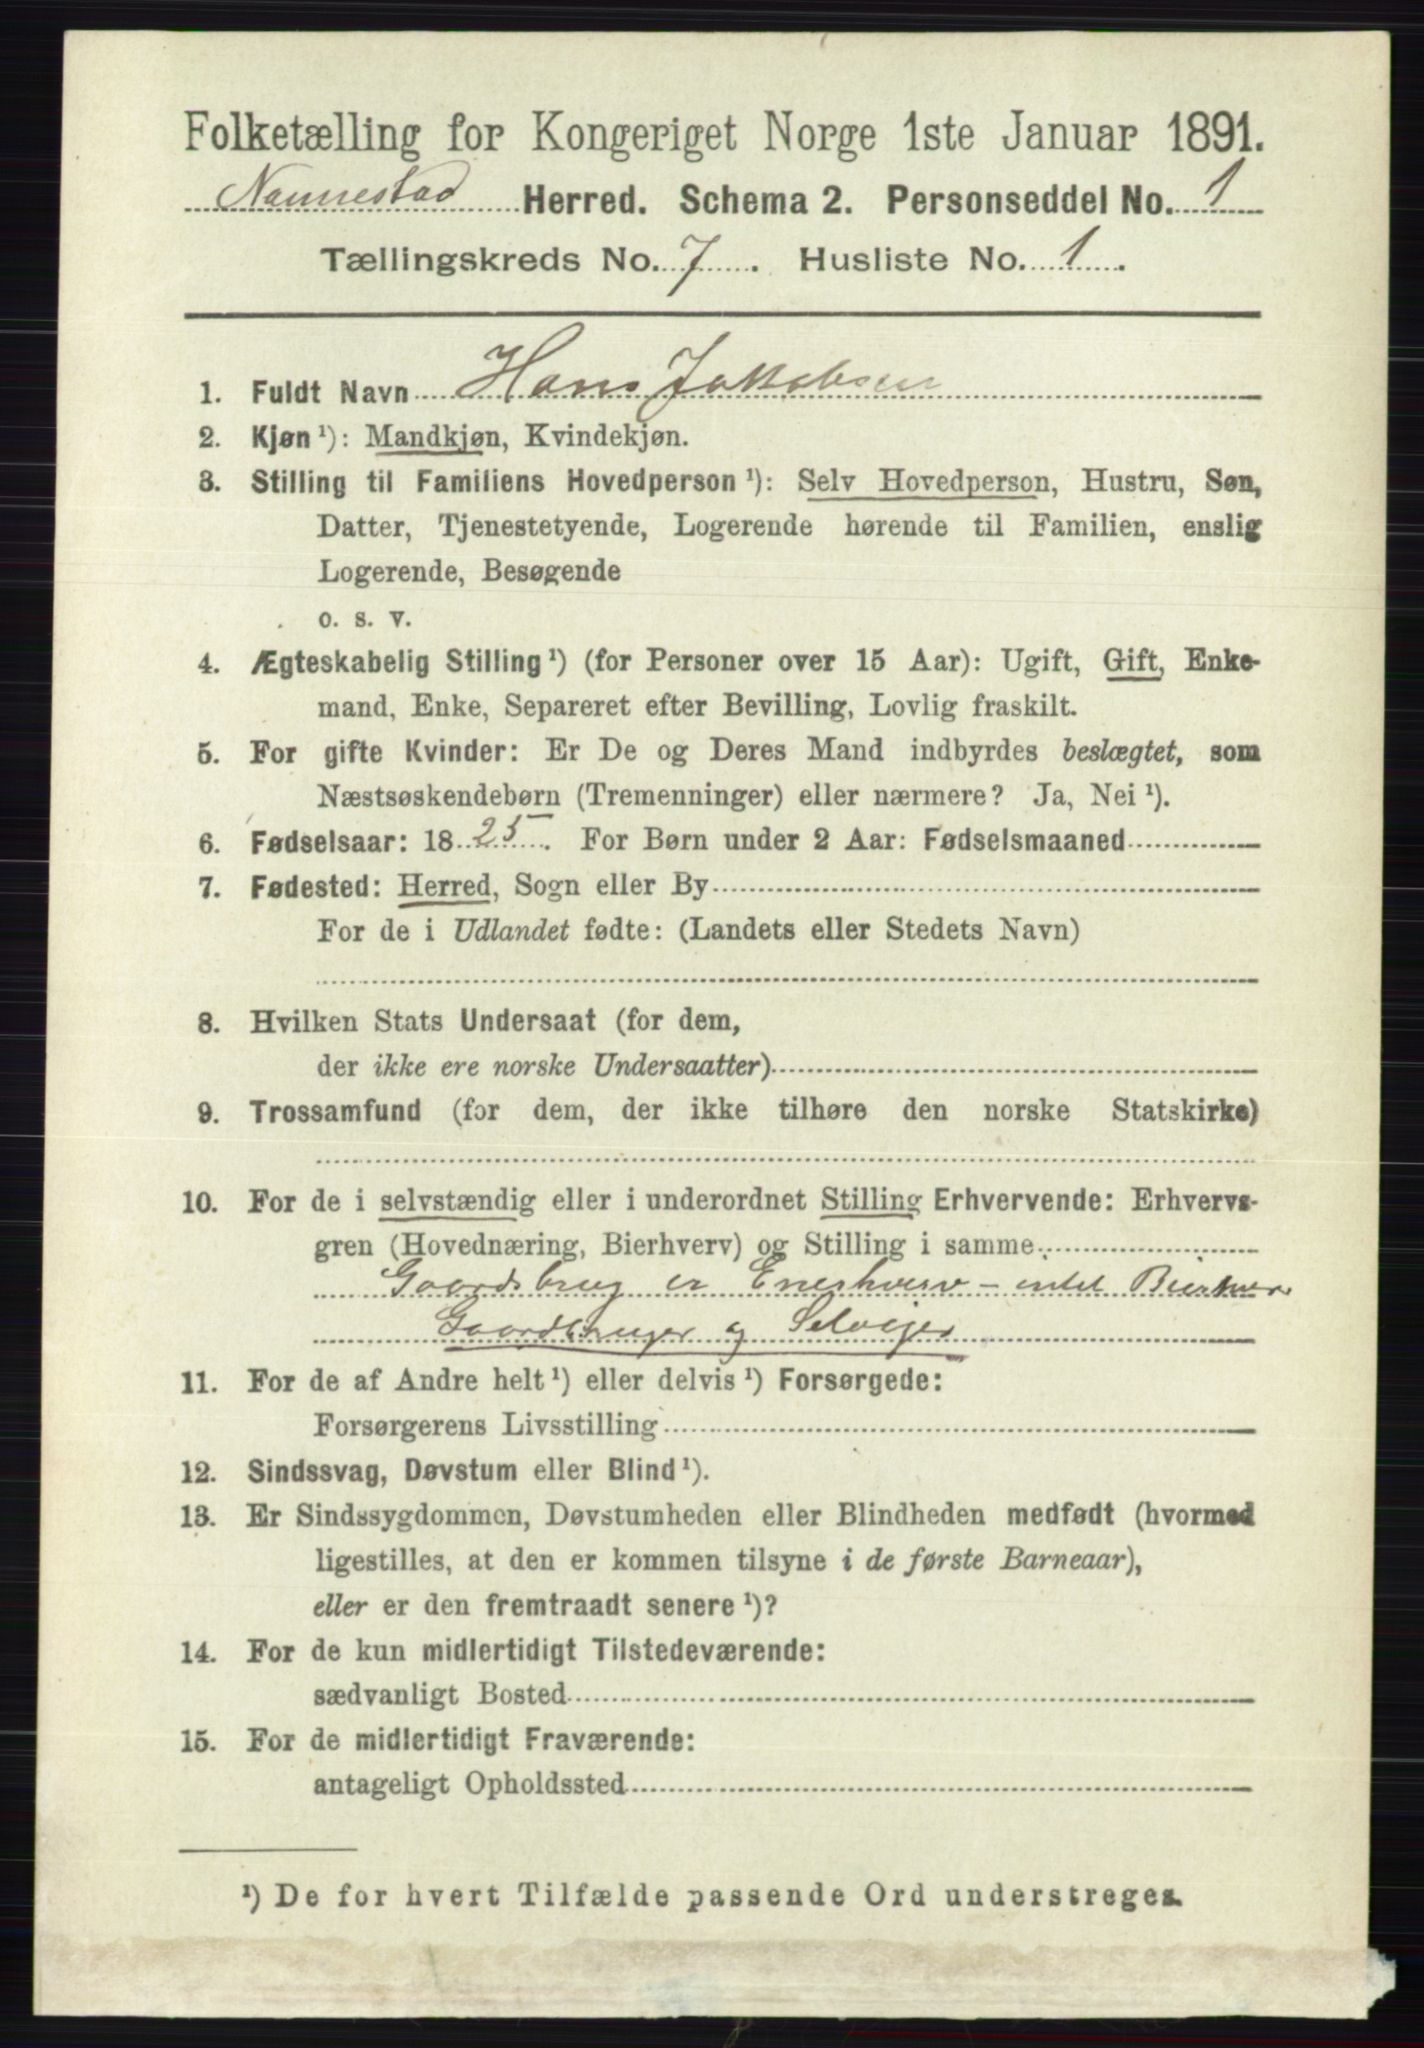 Folketælling for Kongeriget Norge 1ste Januar 1891.
Nannestad Herred. Schema 2. Personseddel No. 1
Tællingskreds No. 7. Husliste No. 1.
1. Fuldt Navn Hans Jakobsen
2. Kjøn ¹): Mandkjøn, Kvindekjøn.
3. Stilling til Familiens Hovedperson ¹): Selv Hovedperson, Hustru, Søn,
Datter, Tjenestetyende, Logerende hørende til Familien, enslig
Logerende, Besøgende
o. s. v.
4. Ægteskabelig Stilling ¹) (for Personer over 15 Aar): Ugift, Gift, Enke-
mand, Enke, Separeret efter Bevilling, Lovlig fraskilt.
5. For gifte Kvinder: Er De og Deres Mand indbyrdes beslægtet, som
Næstsøskendebørn (Tremenninger) eller nærmere? Ja, Nei ¹).
6. Fødselsaar: 1825. For Børn under 2 Aar: Fødselsmaaned
7. Fødested: Herred, Sogn eller By
For de i Udlandet fødte: (Landets eller Stedets Navn)
8. Hvilken Stats Undersaat (for dem,
der ikke ere norske Undersaatter)
9. Trossamfund (for dem, der ikke tilhøre den norske Statskirke)
10. For de i selvstændig eller i underordnet Stilling Erhvervende: Erhvervs-
gren (Hovednæring, Bierhverv) og Stilling i samme
Gaardsbrug er Enerhverv – intet Bierhverv
Gaardbruger og Selveier
11. For de af Andre helt ¹) eller delvis ¹) Forsørgede:
Forsørgerens Livsstilling
12. Sindssvag, Døvstum eller Blind ¹).
13. Er Sindssygdommen, Døvstumheden eller Blindheden medfødt (hvormed
ligestilles, at den er kommen tilsyne i de første Barneaar),
eller er den fremtraadt senere ¹)?
14. For de kun midlertidigt Tilstedeværende:
sædvanligt Bosted
15. For de midlertidigt Fraværende:
antageligt Opholdssted
¹) De for hvert Tilfælde passende Ord understreges.